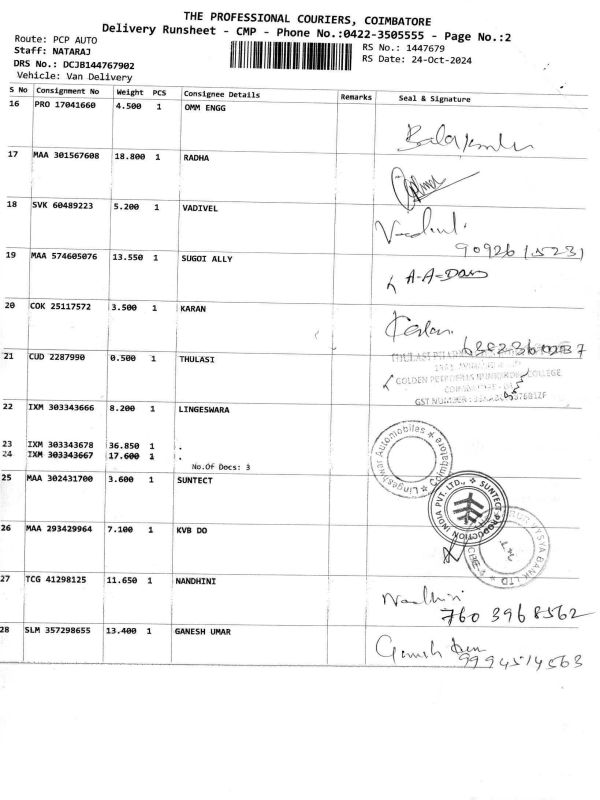 THE PROFESSIONAL COURIERS, COIMBATORE
Delivery Runsheet - CMP - Phone No.:0422-3505555 - Page No.:2
Route: PCP AUTO
RS No.: 1447679
Staff: NATARAJ
RS Date: 24-Oct-2024
DRS No.: DCJB144767902
Vehicle: Van Delivery
S No Consignment No Weight PCS Consignee Details Remarks Seal & Signature
16 PRO 17041660 4.500 1 OMM ENGG
17 MAA 301567608 18.800 1 RADHA
18 SVK 60489223 5.200 1 VADIVEL
9092615231
19 MAA 574605076 13.550 1 SUGOI ALLY
A-A-Das
20 COK 25117572 3.500 1 KARAN
Karan
21 CUD 2287990 0.500 1 THULASI
THULASI
COLLEGE
GST NUMBER :
22 IXM 303343666 8.200 1 LINGESWARA
Lingeshwar Automobiles * Coimbatore *
23 IXM 303343678 36.850 1 .
24 IXM 303343667 17.600 1 .
No.Of Docs: 3
25 MAA 302431700 3.600 1 SUNTECT
SUNTECT PRODUCTION INDIA PVT. LTD.,
26 MAA 293429964 7.100 1 KVB DO
VYSYA BANK LTD
27 TCG 41298125 11.650 1 NANDHINI
Nandhini
760 3968562
28 SLM 357298655 13.400 1 GANESH UMAR
9994514563